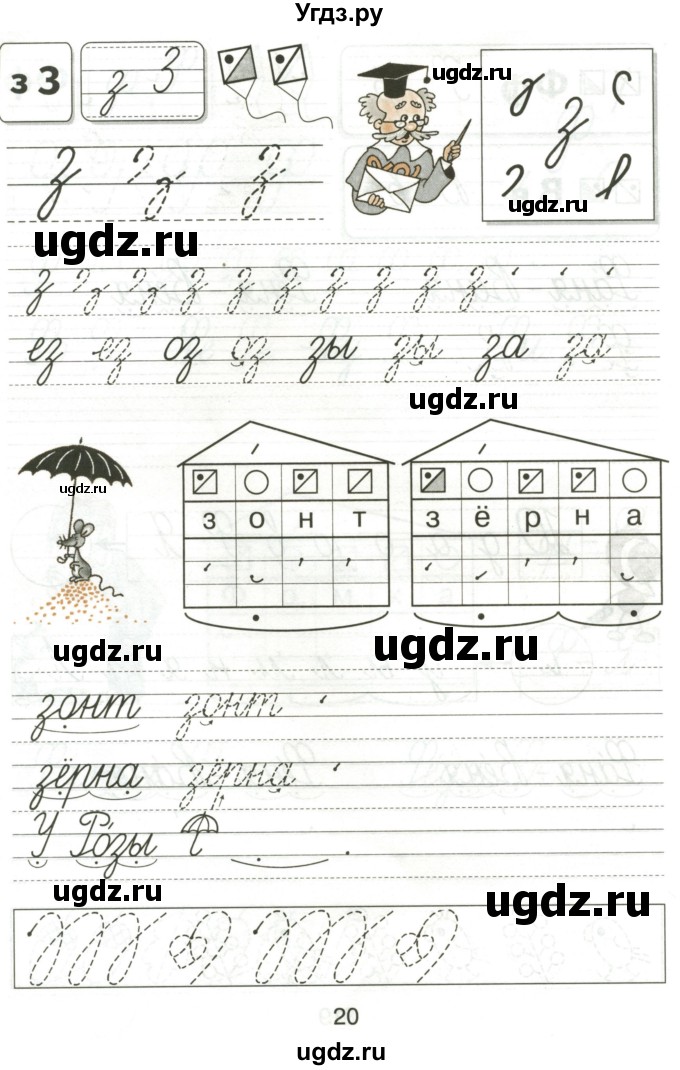 Угдз.ру
з З
з З
ugdz.ru
з з з
ugdz.ru
ugdz.ru
з з з з з з з з з з
ез ез оз оз зы зы за за
ugdz.ru
ugdz.ru
з о н т
з ё р н а
ugdz.ru
ugdz.ru
зонт зонт
зёрна зёрна
У Розы
ugdz.ru
ugdz.ru
20
ugdz.ru